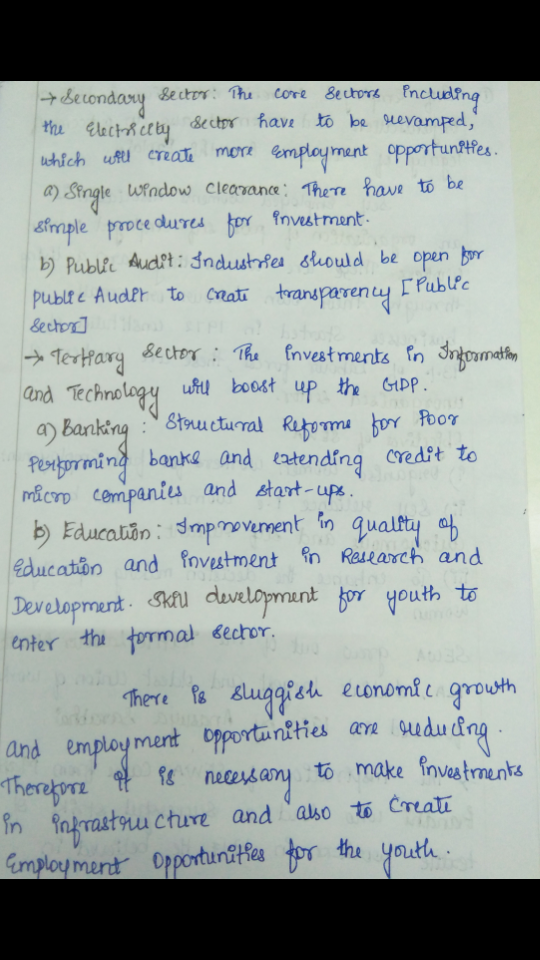 → Secondary Sector: The core Sectors including
the Electricity Sector have to be revamped,
which will create more Employment opportunities.
a) Single Window Clearance: There have to be
simple procedures for investment.
b) Public Audit: Industries should be open for
public Audit to create transparency [Public
Sector]
→ Tertiary Sector: The investments in Information
and Technology will boost up the GDP.
a) Banking: Structural Reforms for Poor
Performing banks and extending credit to
micro companies and start-ups.
b) Education: Improvement in quality of
Education and investment in Research and
Development. Skill development for youth to
enter the formal sector.
There is sluggish economic growth
and employment opportunities are reducing.
Therefore it is necessary to make investments
in infrastructure and also to Create
Employment Opportunities for the youth.